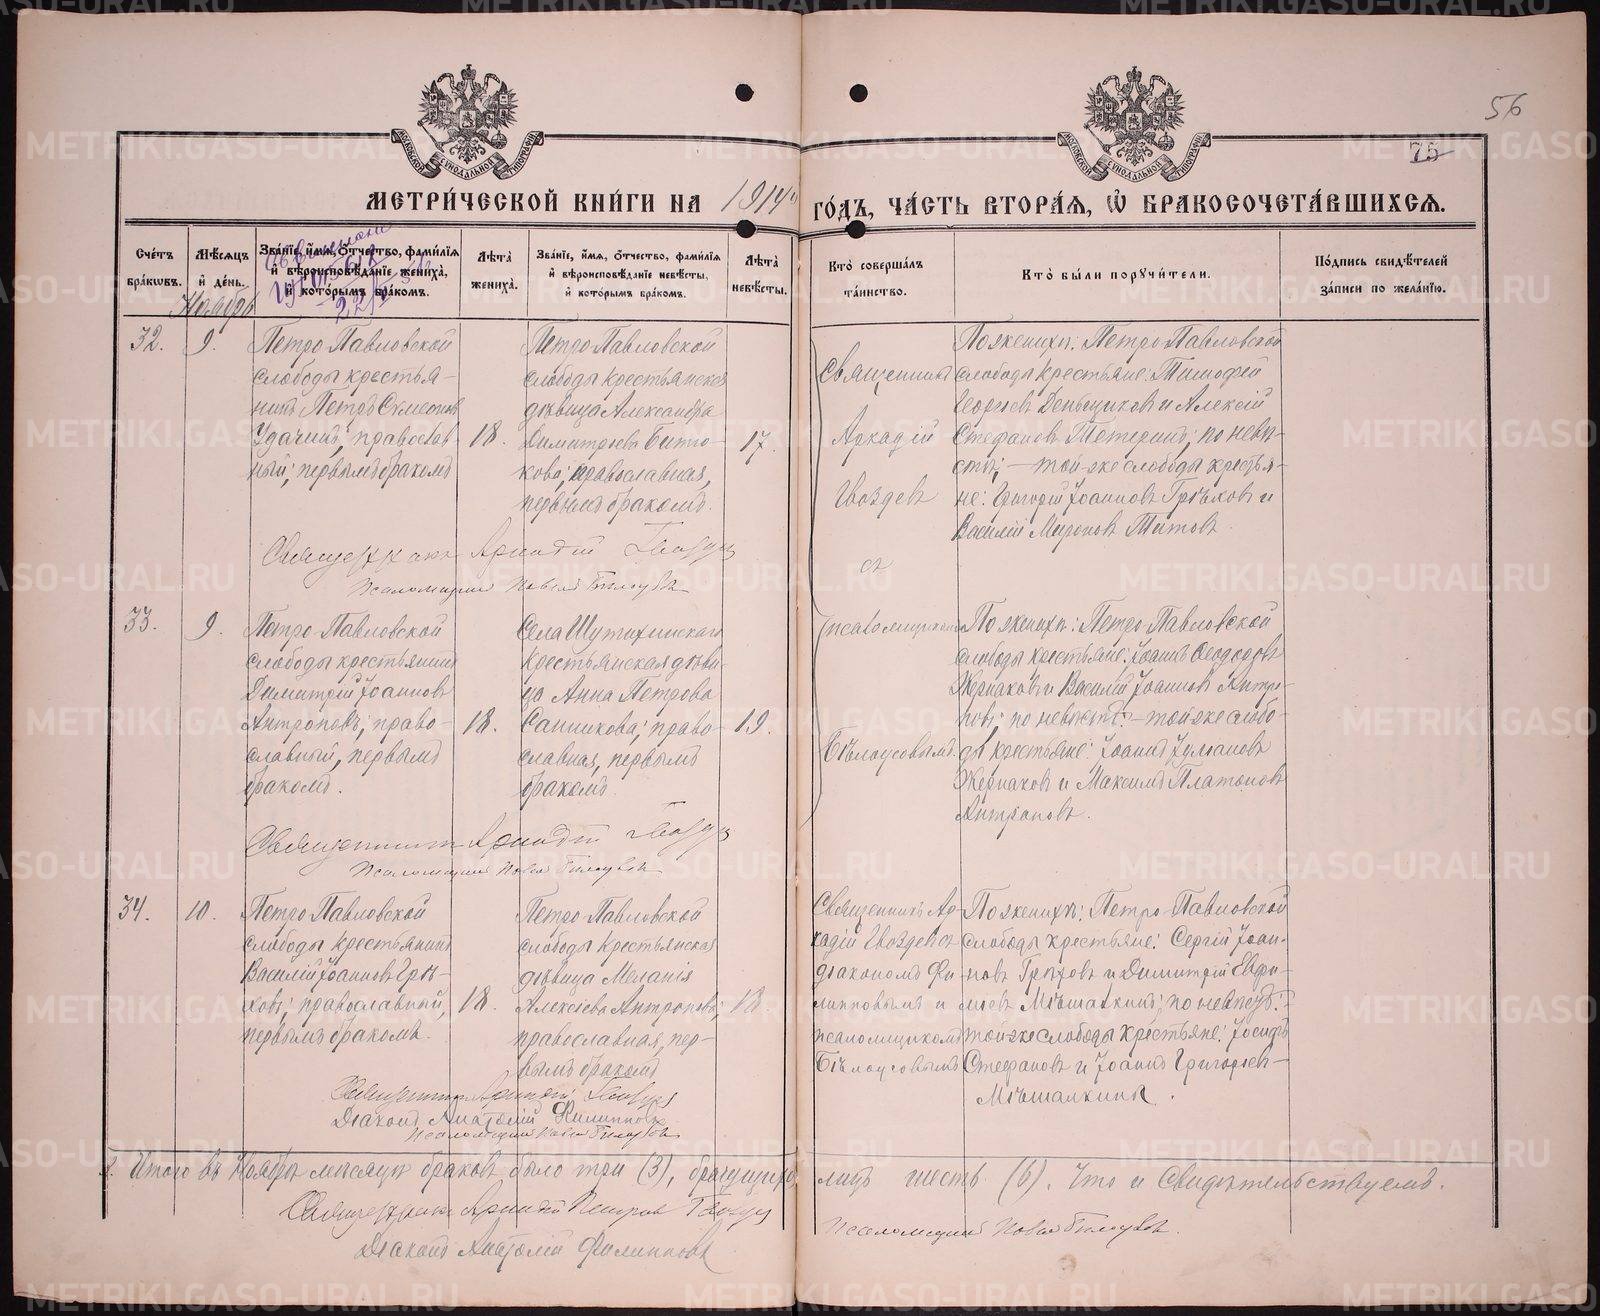 56
75
МЕТРИ́ЧЕСКОЙ КНИ́ГИ НА 1914 ГО́ДЪ, ЧА́СТЬ ВТОРА́Я, Ѡ БРАКОСОЧЕТА́ВШИХСЯ.
Сче́тъ бра́ковъ.
Мѣ́сяцъ и де́нь.
Ноябрь
Зва́нїе, и́мя, о́тчество, фами́лїя и вѣроисповѣ́данїе жениха́, и кото́рымъ бра́комъ.
Лѣ́та жениха́.
Зва́нїе, и́мя, о́тчество, фами́лїя и вѣроисповѣ́данїе невѣ́сты, и кото́рымъ бра́комъ.
Лѣ́та невѣ́сты.
Кто̀ соверша́лъ та́инство.
Кто̀ бы́ли поручи́тели.
По́дпись свидѣ́телей за́писи по жела́нїю.
32.
9.
Петро-Павловской
слободы крестья-
нинъ Петръ Сѵмеоновъ
Удачинъ, православ-
ный; первымъ бракомъ
18.
Петро-Павловской
слободы крестьянская
дѣвица Александра
Димитріева Битю-
кова; православная,
первымъ бракомъ.
17.
Священникъ
Аркадій
Гвоздевъ
съ
По женихѣ: Петро-Павловской
слободы крестьяне: Тимофей
Георгіевъ Деньщиковъ и Алексій
Стефановъ Тетеринъ; по невѣ-
стѣ; — той-же слободы крестья-
не: Григорій Іоанновъ Грѣховъ и
Василій Мироновъ Титовъ.
Священникъ Аркадій Гвоздевъ
Псаломщикъ Павелъ Бѣлоусовъ
33.
9.
Петро-Павловской
слободы крестьянинъ
Димитрій Іоанновъ
Антроповъ; право-
славный, первымъ
бракомъ.
18.
Села Шутихинскаго
крестьянская дѣви-
ца Анна Петрова
Санникова; право-
славная, первымъ
бракомъ.
19.
псаломщикомъ
Бѣлоусовымъ
По женихѣ: Петро-Павловской
слободы крестьяне: Іоаннъ Ѳеодоровъ
Жернаковъ и Василій Іоанновъ Антро-
повъ; по невѣстѣ: — той же слобо-
ды крестьяне: Іоаннъ Іуліановъ
Жернаковъ и Максимъ Платоновъ
Антроповъ.
Священникъ Аркадій Гвоздевъ
Псаломщикъ Павелъ Бѣлоусовъ
34.
10.
Петро-Павловской
слободы крестьянинъ
Василій Іоанновъ Грѣ-
ховъ; православный,
первымъ бракомъ.
18.
Петро-Павловской
слободы крестьянская
дѣвица Меланія
Алексіева Антропова;
православная, пер-
вымъ бракомъ
18.
Священникъ Ар-
кадій Гвоздевъ съ
діакономъ Фи-
липповымъ и
псаломщикомъ
Бѣлоусовымъ
По женихѣ: Петро-Павловской
слободы крестьяне: Сергій Іоан-
новъ Грѣховъ и Димитрій Евфи-
міевъ Мѣшалкинъ; по невѣстѣ:
той же слободы крестьяне: Іосифъ
Стефановъ и Іоаннъ Григорьев-
Мѣшалкины.
Священникъ Аркадій Гвоздевъ
Діаконъ Анатолій Филипповъ
Псаломщикъ Павелъ Бѣлоусовъ
Итого въ Ноябрѣ мѣсяцѣ браковъ было три (3), брачущихся лицъ шесть (6). Что и свидѣтельствуемъ.
Священникъ Аркадій Петровъ Гвоздевъ
Псаломщикъ Павелъ Бѣлоусовъ.
Діаконъ Анатолій Филипповъ